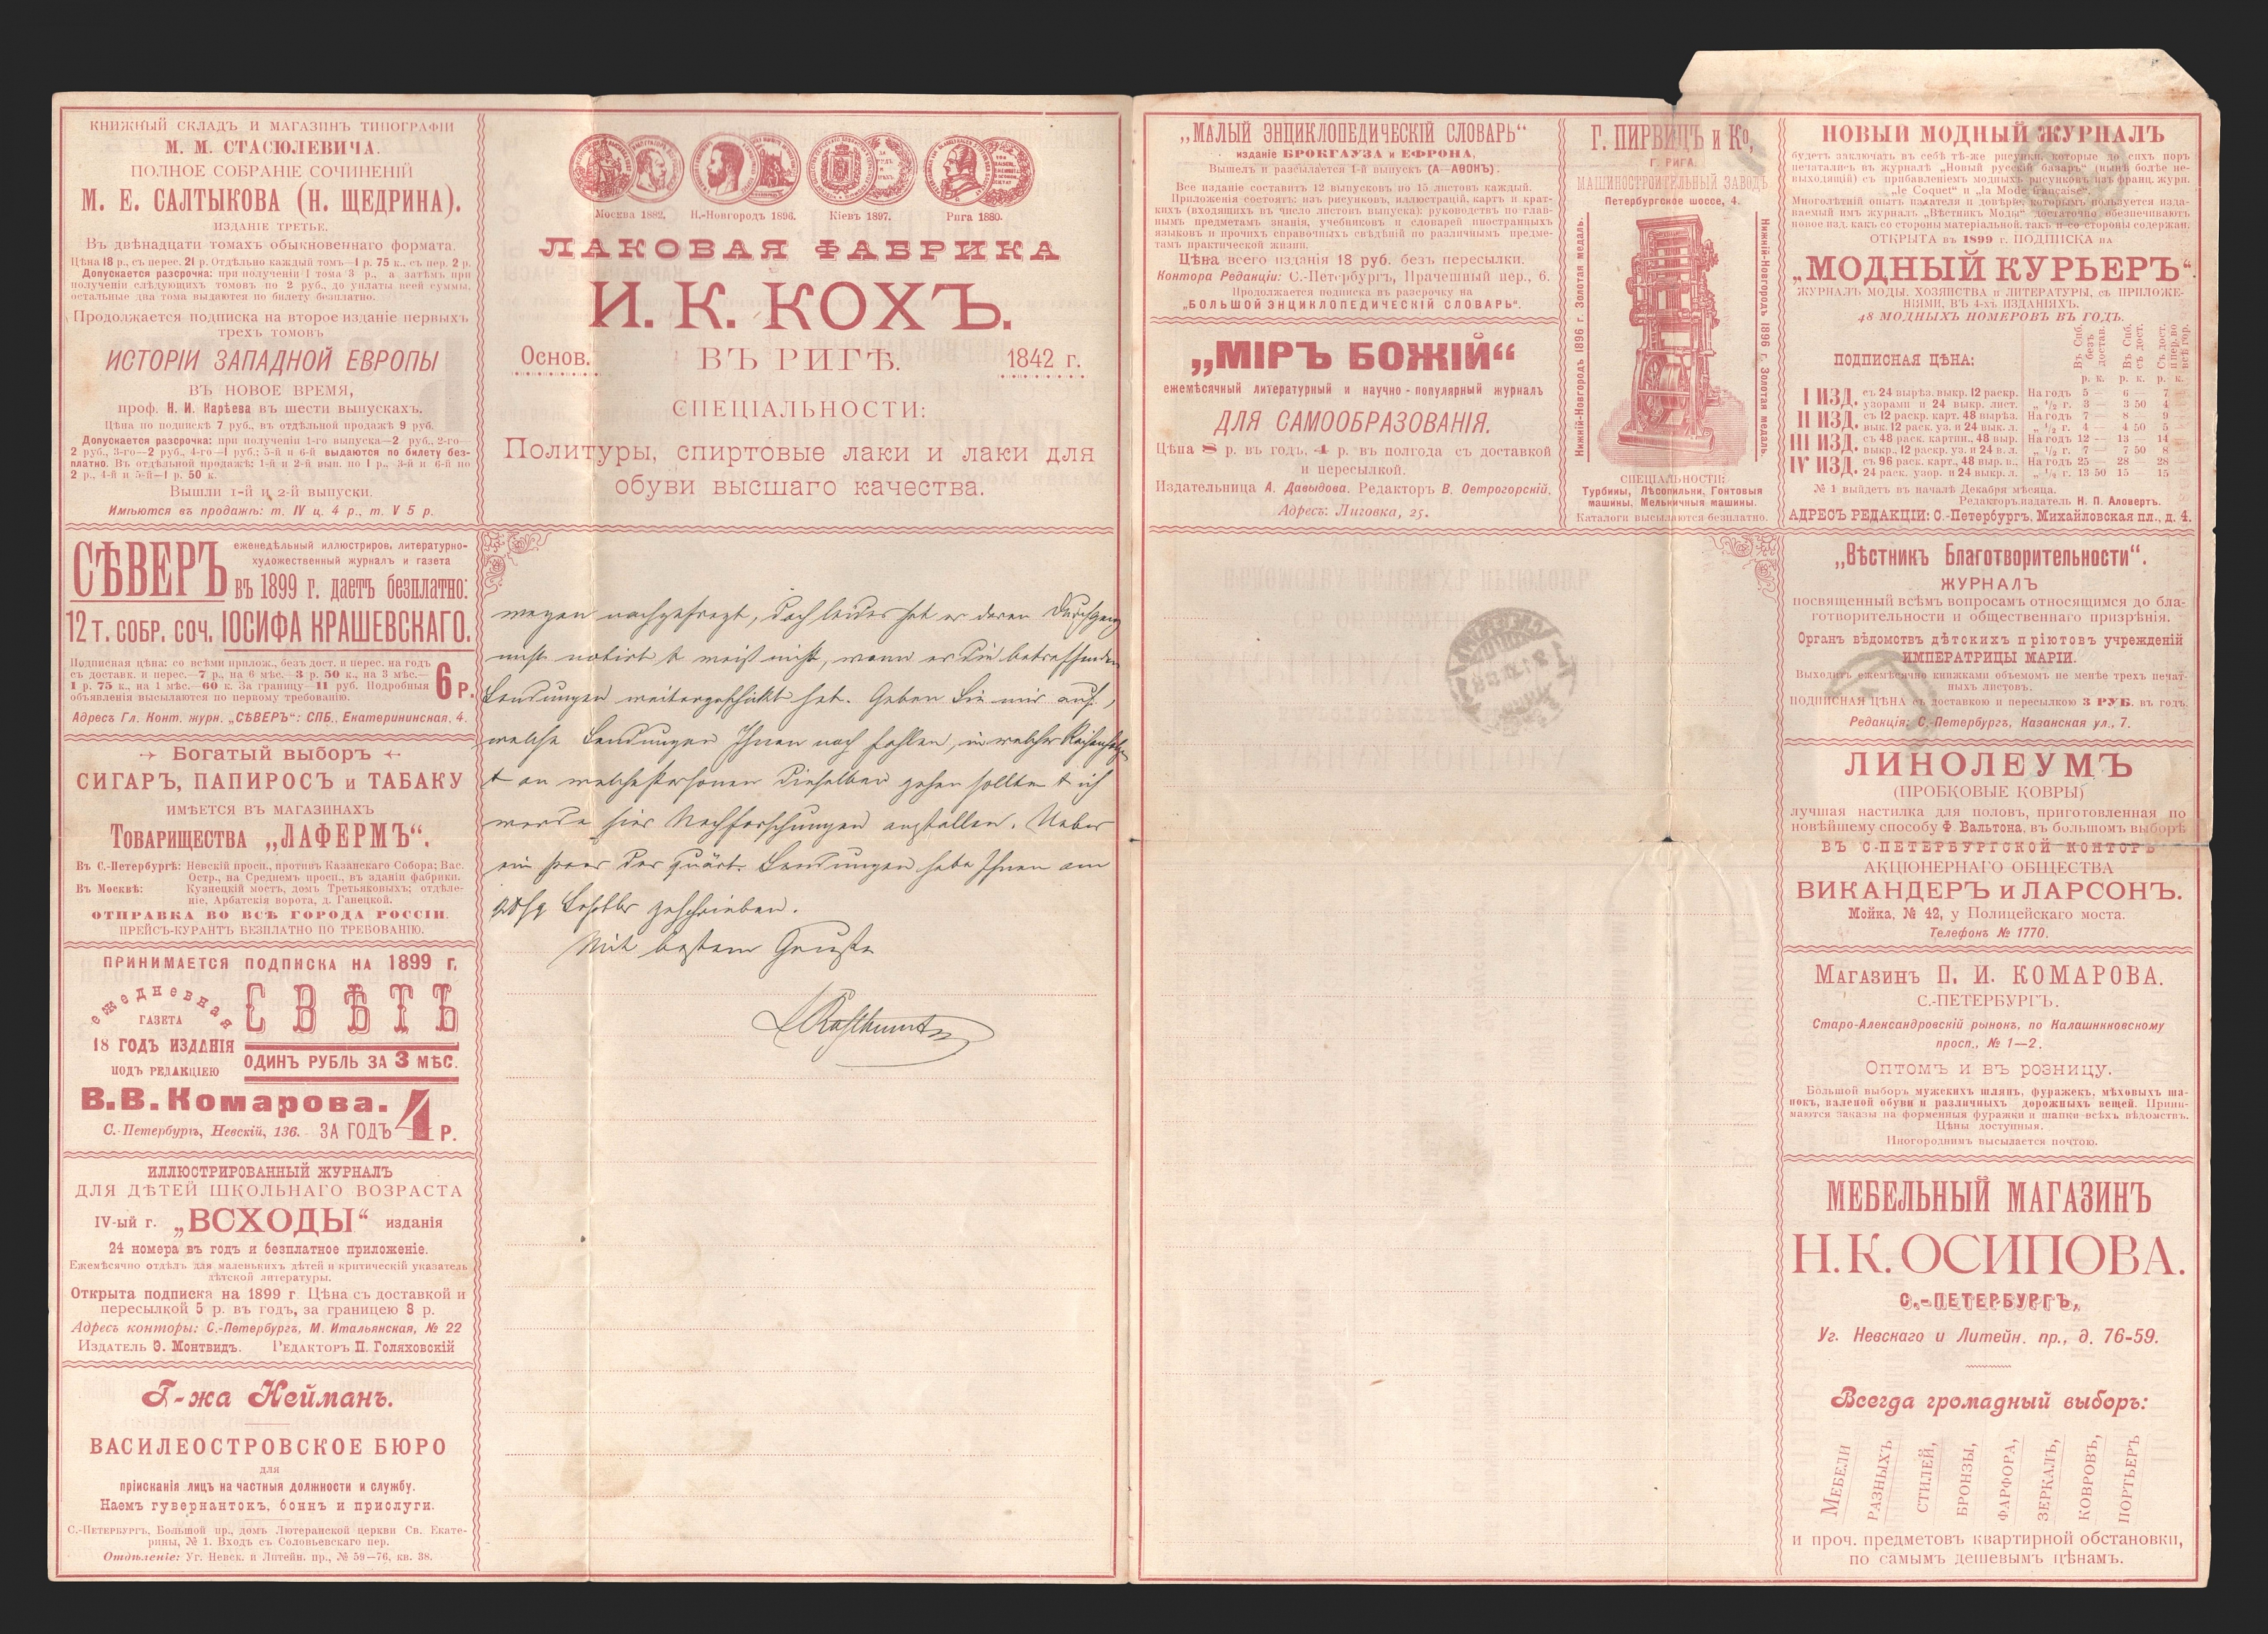 КНИЖНЫЙ СКЛАДЪ И МАГАЗИНЪ ТИПОГРАФІИ
М. М. СТАСЮЛЕВИЧА.
ПОЛНОЕ СОБРАНІЕ СОЧИНЕНІЙ
М. Е. САЛТЫКОВА (Н. ЩЕДРИНА).
ИЗДАНІЕ ТРЕТЬЕ.
Въ двѣнадцати томахъ обыкновеннаго формата.
Цѣна 18 р., съ перес. 21 р. Отдѣльно каждый томъ—1 р. 75 к., съ пер. 2 р.
Допускается разсрочка: при полученіи 1 тома 3 р., а затѣмъ при
полученіи слѣдующихъ томовъ по 2 руб., до уплаты всей суммы,
остальные два тома выдаются по билету безплатно.
Продолжается подписка на второе изданіе первыхъ
трехъ томовъ
ИСТОРІИ ЗАПАДНОЙ ЕВРОПЫ
ВЪ НОВОЕ ВРЕМЯ,
проф. Н. И. Карѣева въ шести выпускахъ.
Цѣна по подпискѣ 7 руб., въ отдѣльной продажѣ 9 руб.
Допускается разсрочка: при полученіи 1-го выпуска—2 руб., 2-го—
2 руб., 3-го—2 руб., 4-го—1 руб.; 5-й и 6-й выдаются по билету без-
платно. Въ отдѣльной продажѣ: 1-й и 2-й вып. по 1 р., 3-й и 6-й по
2 р., 4-й и 5-й—1 р. 50 к.
Вышли 1-й и 2-й выпуски.
Имѣются въ продажѣ: т. IV ц. 4 р., т. V 5 р.
СѢВЕРЪ
еженедѣльный иллюстриров. литературно-
художественный журналъ и газета
въ 1899 г. даетъ безплатно:
12 т. СОБР. СОЧ. ІОСИФА КРАШЕВСКАГО.
Подписная цѣна: со всѣми прилож., безъ дост. и перес. на годъ
съ доставк. и перес.—7 р., на 6 мѣс.—3 р. 50 к., на 3 мѣс.—
1 р. 75 к., на 1 мѣс.—60 к. За границу—11 руб. Подробныя
объявленія высылаются по первому требованію.
6 р.
Адресъ Гл. Конт. журн. „СѢВЕРЪ“: СПБ., Екатерининская, 4.
Богатый выборъ
СИГАРЪ, ПАПИРОСЪ и ТАБАКУ
ИМѢЕТСЯ ВЪ МАГАЗИНАХЪ
Товарищества „ЛАФЕРМЪ“.
Въ С.-Петербургѣ: Невскій просп., противъ Казанскаго Собора; Вас.
Остр., на Среднемъ просп., въ зданіи фабрики.
Въ Москвѣ: Кузнецкій мостъ, домъ Третьяковыхъ; отдѣле-
ніе, Арбатскія ворота, д. Ганецкой.
ОТПРАВКА ВО ВСѢ ГОРОДА РОССІИ.
ПРЕЙСЪ-КУРАНТЪ БЕЗПЛАТНО ПО ТРЕБОВАНІЮ.
ПРИНИМАЕТСЯ ПОДПИСКА НА 1899 г.
ежедневная
ГАЗЕТА
СВѢТЪ
18 ГОДЪ ИЗДАНІЯ
ПОДЪ РЕДАКЦІЕЮ
ОДИНЪ РУБЛЬ ЗА 3 МѢС.
В. В. Комарова.
С.-Петербургъ, Невскій, 136.
ЗА ГОДЪ 4 Р.
ИЛЛЮСТРИРОВАННЫЙ ЖУРНАЛЪ
ДЛЯ ДѢТЕЙ ШКОЛЬНАГО ВОЗРАСТА
IV-ый г. „ВСХОДЫ“ изданія
24 номера въ годъ и безплатное приложеніе.
Ежемѣсячно отдѣлъ для маленькихъ дѣтей и критическій указатель
дѣтской литературы.
Открыта подписка на 1899 г. Цѣна съ доставкой и
пересылкой 5 р. въ годъ, за границею 8 р.
Адресъ конторы: С.-Петербургъ, М. Итальянская, № 22
Издатель Э. Монтвидъ. Редакторъ П. Голяховскій
Г-жа Нейманъ.
ВАСИЛЕОСТРОВСКОЕ БЮРО
для
пріисканія лицъ на частныя должности и службу.
Наемъ гувернантокъ, боннъ и прислуги.
С.-Петербургъ, Большой пр., домъ Лютеранской церкви Св. Екате-
рины, № 1. Входъ съ Соловьевскаго пер.
Отдѣленіе: Уг. Невск. и Литейн. пр., № 59—76, кв. 38.
Москва 1882. Н.-Новгородъ 1896. Кіевъ 1897. Рига 1880.
ЛАКОВАЯ ФАБРИКА
И. К. КОХЪ.
Основ. ВЪ РИГѢ. 1842 г.
СПЕЦІАЛЬНОСТИ:
Политуры, спиртовые лаки и лаки для
обуви высшаго качества.
wegen nachgefragt, doch leider hat er deren Durchgang
nicht notirt & weiß nicht, wann er die betreffenden
Sendungen weitergeschickt hat. Geben Sie mir auf,
welche Sendungen Ihnen noch fehlen, in welcher Reihenfolge
& an welche Personen dieselben gehen sollten & ich
werde hier Nachforschungen anstellen. Ueber
ein paar der Sendungen habe Ihnen am
geschrieben.
Mit bestem Grusse
„МАЛЫЙ ЭНЦИКЛОПЕДИЧЕСКІЙ СЛОВАРЬ“
изданіе БРОКГАУЗА и ЕФРОНА,
Вышелъ и разсылается 1-й выпускъ (А—АѲОНЪ).
Все изданіе составитъ 12 выпусковъ по 15 листовъ каждый.
Приложенія состоятъ: изъ рисунковъ, иллюстрацій, картъ и крат-
кихъ (входящихъ въ число листовъ выпуска): руководствъ по глав-
нымъ предметамъ знанія, учебниковъ и словарей иностранныхъ
языковъ и прочихъ справочныхъ свѣдѣній по различнымъ предме-
тамъ практической жизни.
Цѣна всего изданія 18 руб. безъ пересылки.
Контора Редакціи: С.-Петербургъ, Прачешный пер., 6.
Продолжается подписка въ разсрочку на
„БОЛЬШОЙ ЭНЦИКЛОПЕДИЧЕСКІЙ СЛОВАРЬ“.
„МІРЪ БОЖІЙ“
ежемѣсячный литературный и научно-популярный журналъ
ДЛЯ САМООБРАЗОВАНІЯ.
Цѣна 8 р. въ годъ, 4 р. въ полгода съ доставкой
и пересылкой.
Издательница А. Давыдова. Редакторъ В. Острогорскій.
Адресъ: Лиговка, 25.
Г. ПИРВИЦЪ и Ко,
Г. РИГА.
МАШИНОСТРОИТЕЛЬНЫЙ ЗАВОДЪ
Петербургское шоссе, 4.
Нижній-Новгородъ 1896 г. Золотая медаль.
Нижній-Новгородъ 1896 г. Золотая медаль.
СПЕЦІАЛЬНОСТИ:
Турбины, Лѣсопильни, Гонтовыя
машины, Мельничныя машины.
Каталоги высылаются безплатно.
НОВЫЙ МОДНЫЙ ЖУРНАЛЪ
будетъ заключать въ себѣ тѣ-же рисунки, которые до сихъ поръ
печатались въ журналѣ „Новый русскій базаръ“ (нынѣ болѣе не-
выходящій) съ прибавленіемъ модныхъ рисунковъ изъ франц. журн.
„le Coquet“ и „la Mode française“.
Многолѣтній опытъ издателя и довѣріе, которымъ пользуется изда-
ваемый имъ журналъ „Вѣстникъ Моды“ достаточно обезпечиваютъ
новое изд. какъ со стороны матеріальной, такъ и со стороны содержан.
ОТКРЫТА въ 1899 г. ПОДПИСКА на
„МОДНЫЙ КУРЬЕРЪ“.
ЖУРНАЛЪ МОДЫ, ХОЗЯЙСТВА и ЛИТЕРАТУРЫ, съ ПРИЛОЖЕ-
НІЯМИ, ВЪ 4-хъ ИЗДАНІЯХЪ.
48 МОДНЫХЪ НОМЕРОВЪ ВЪ ГОДЪ.
ПОДПИСНАЯ ЦѢНА:
Въ Спб. безъ достав. Въ Спб. съ дост. Съ дост. и пер. во всѣ гор.
р. к. р. к. р. к.
I ИЗД. съ 24 вырѣз. выкр. 12 раскр. На годъ 5 — 6 — 7
узорами и 24 выкр. лист. „ ½ г. 3 — 3 50 4
II ИЗД. съ 12 раскр. карт. 48 вырѣз. На годъ 7 — 8 — 9
вык. 12 раск. уз. и 24 вык. л. „ ½ г. 4 — 4 50 5
III ИЗД. съ 48 раск. картин., 48 выр. На годъ 12 — 13 — 14
выкр., 12 раскр. уз. и 24 в. л. „ ½ г. 7 — 7 50 8
IV ИЗД. съ 96 раск. карт., 48 выр. в., На годъ 25 — 28 — 28
24 раск. узор. и 24 выкр. л. „ ½ г. 13 50 15 — 15
№ 1 выйдетъ въ началѣ Декабря мѣсяца.
Редакторъ-издатель Н. П. Аловертъ.
АДРЕСЪ РЕДАКЦІИ: С.-Петербургъ, Михайловская пл., д. 4.
„Вѣстникъ Благотворительности“.
ЖУРНАЛЪ
посвященный всѣмъ вопросамъ относящимся до бла-
готворительности и общественнаго призрѣнія.
Органъ вѣдомствъ дѣтскихъ пріютовъ учрежденій
ИМПЕРАТРИЦЫ МАРІИ.
Выходитъ ежемѣсячно книжками объемомъ не менѣе трехъ печат-
ныхъ листовъ.
ПОДПИСНАЯ ЦѢНА съ доставкою и пересылкою 3 РУБ. въ годъ.
Редакція: С.-Петербургъ, Казанская ул., 7.
ЛИНОЛЕУМЪ
(ПРОБКОВЫЕ КОВРЫ)
лучшая настилка для половъ, приготовленная по
новѣйшему способу Ф. Вальтона, въ большомъ выборѣ
ВЪ С-ПЕТЕРБУРГСКОЙ КОНТОРѢ
АКЦІОНЕРНАГО ОБЩЕСТВА
ВИКАНДЕРЪ и ЛАРСОНЪ.
Мойка, № 42, у Полицейскаго моста.
Телефонъ № 1770.
Магазинъ П. И. КОМАРОВА.
С.-ПЕТЕРБУРГЪ.
Старо-Александровскій рынокъ, по Калашниковскому
просп., № 1—2.
Оптомъ и въ розницу.
Большой выборъ мужскихъ шляпъ, фуражекъ, мѣховыхъ ша-
покъ, валеной обуви и различныхъ дорожныхъ вещей. Прини-
маются заказы на форменныя фуражки и шапки всѣхъ вѣдомствъ.
Цѣны доступныя.
Иногороднимъ высылается почтою.
МЕБЕЛЬНЫЙ МАГАЗИНЪ
Н. К. ОСИПОВА.
С.-ПЕТЕРБУРГЪ,
Уг. Невскаго и Литейн. пр., д. 76-59.
Всегда громадный выборъ:
Мебели
разныхъ
стилей,
бронзы,
фарфора,
зеркалъ,
ковровъ,
портьеръ
и проч. предметовъ квартирной обстановки,
по самымъ дешевымъ цѣнамъ.